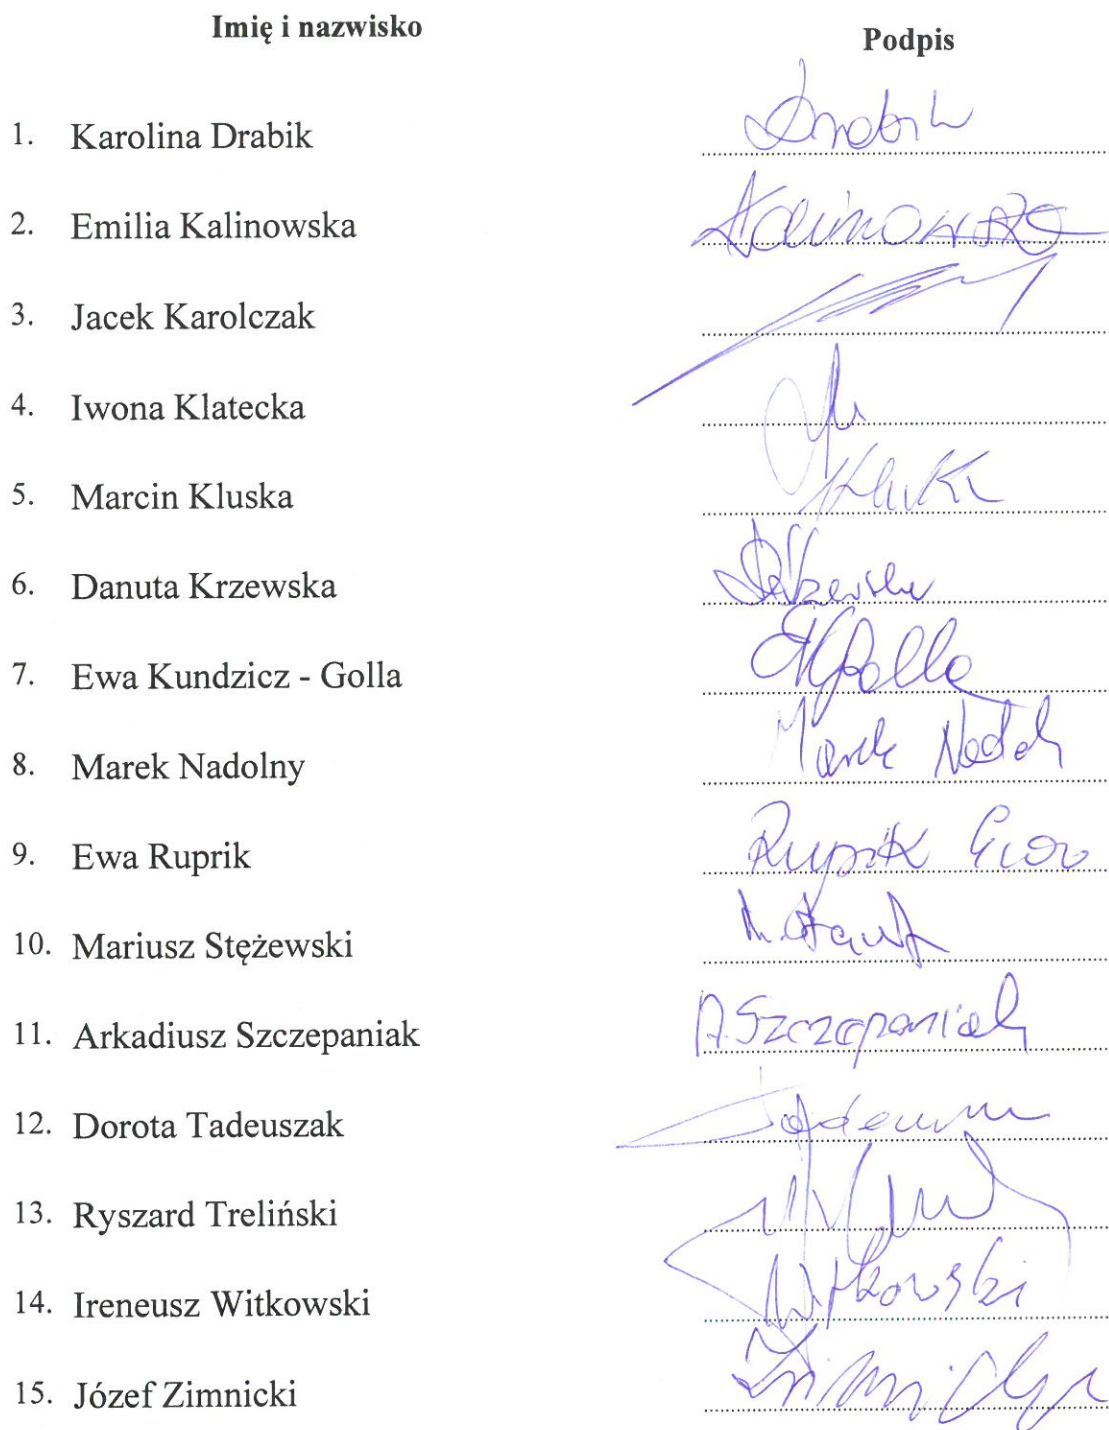 Imię i nazwisko Podpis
1. Karolina Drabik Drabik
2. Emilia Kalinowska Kalinowska
3. Jacek Karolczak
4. Iwona Klatecka
5. Marcin Kluska
6. Danuta Krzewska DKrzewska
7. Ewa Kundzicz - Golla EKGolla
8. Marek Nadolny Marek
9. Ewa Ruprik Ruprik Ewa
10. Mariusz Stężewski
11. Arkadiusz Szczepaniak A. Szczepaniak
12. Dorota Tadeuszak
13. Ryszard Treliński
14. Ireneusz Witkowski Witkowski
15. Józef Zimnicki